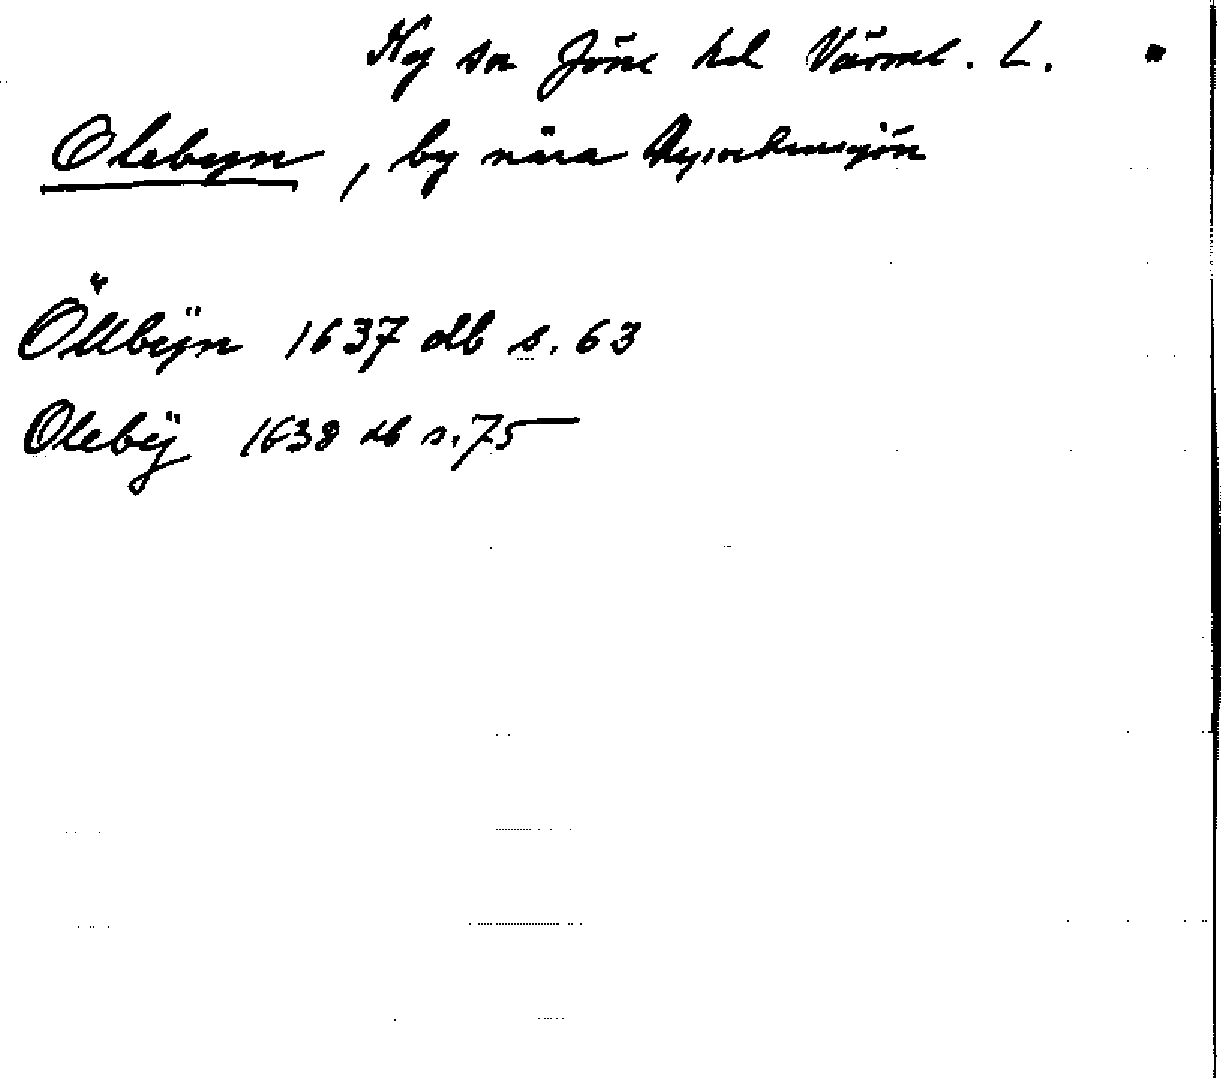 Ny sn Jösse hd Värml. L.
Olebyn, by nära Nysockensjön
Öllbÿn 1637 db s. 63
Olebÿ 1638 db s. 75